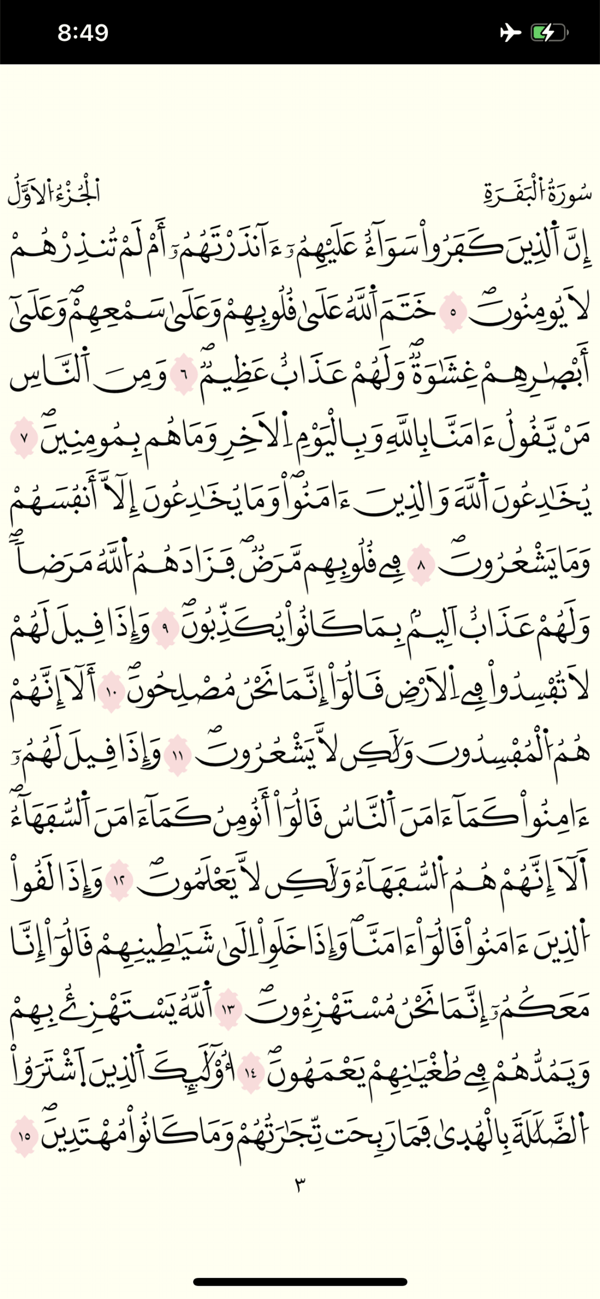 8:49
سُورَةُ اُ۬لْبَقَرَةِ
اَ۬لْجُزْءُ اُ۬لَاوَّلُ
إِنَّ اَ۬لذِينَ كَفَرُواْ سَوَآءٌ عَلَيْهِمُۥٓ ءَآنذَرْتَهُمُۥٓ أَمْ لَمْ تُنذِرْهُمْ
لَا يُومِنُونَۖ ٥ خَتَمَ اَ۬للَّهُ عَلَىٰ قُلُوبِهِمْ وَعَلَىٰ سَمْعِهِمْۖ وَعَلَىٰٓ
أَبْصٰ۪رِهِمْ غِشَٰوَةٞۖ وَلَهُمْ عَذَابٌ عَظِيمٞۖ ٦ وَمِنَ اَ۬لنَّاسِ
مَنْ يَّقُولُ ءَامَنَّا بِاللَّهِ وَبِالْيَوْمِ اِ۬لَاخِرِ وَمَا هُم بِمُومِنِينَۖ ٧
يُخَٰدِعُونَ اَ۬للَّهَ وَالذِينَ ءَامَنُواْۖ وَمَا يُخَٰدِعُونَ إِلَّآ أَنفُسَهُمْ
وَمَا يَشْعُرُونَۖ ٨ فِے قُلُوبِهِم مَّرَضٞۖ فَزَادَهُمُ اُ۬للَّهُ مَرَضاٗۖ
وَلَهُمْ عَذَابٌ اَلِيمُۢ بِمَا كَانُواْ يُكَذِّبُونَۖ ٩ وَإِذَا قِيلَ لَهُمْ
لَا تُفْسِدُواْ فِے اِ۬لَارْضِ قَالُوٓاْ إِنَّمَا نَحْنُ مُصْلِحُونَۖ ١٠ أَلَآ إِنَّهُمْ
هُمُ اُ۬لْمُفْسِدُونَ وَلَٰكِن لَّا يَشْعُرُونَۖ ١١ وَإِذَا قِيلَ لَهُمُۥٓ
ءَامِنُواْ كَمَآ ءَامَنَ اَ۬لنَّاسُ قَالُوٓاْ أَنُومِنُ كَمَآ ءَامَنَ اَ۬لسُّفَهَآءُۖ
أَلَآ إِنَّهُمْ هُمُ اُ۬لسُّفَهَآءُ وَلَٰكِن لَّا يَعْلَمُونَۖ ١٢ وَإِذَا لَقُواْ
اُ۬لذِينَ ءَامَنُواْ قَالُوٓاْ ءَامَنَّاۖ وَإِذَا خَلَوِاْ اِلَىٰ شَيَٰطِينِهِمْ قَالُوٓاْ إِنَّا
مَعَكُمُۥٓ إِنَّمَا نَحْنُ مُسْتَهْزِءُونَۖ ١٣ اَ۬للَّهُ يَسْتَهْزِئُ بِهِمْ
وَيَمُدُّهُمْ فِے طُغْيَٰنِهِمْ يَعْمَهُونَۖ ١٤ أُوْلَٰٓئِكَ اَ۬لذِينَ اَ۪شْتَرَوُاْ
اُ۬لضَّلَٰلَةَ بِالْهُد۪ىٰ فَمَا رَبِحَت تِّجَٰرَتُهُمْ وَمَا كَانُواْ مُهْتَدِينَۖ ١٥
٣